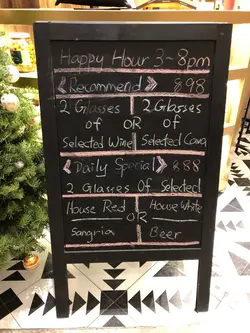 Happy Hour 3-8pm
《Recommend》 $98
2 Glasses 2 Glasses
of OR of
Selected Wine Selected Cava
《Daily Special》 $88
2 Glasses Of Selected
House Red House White
OR
Sangria Beer